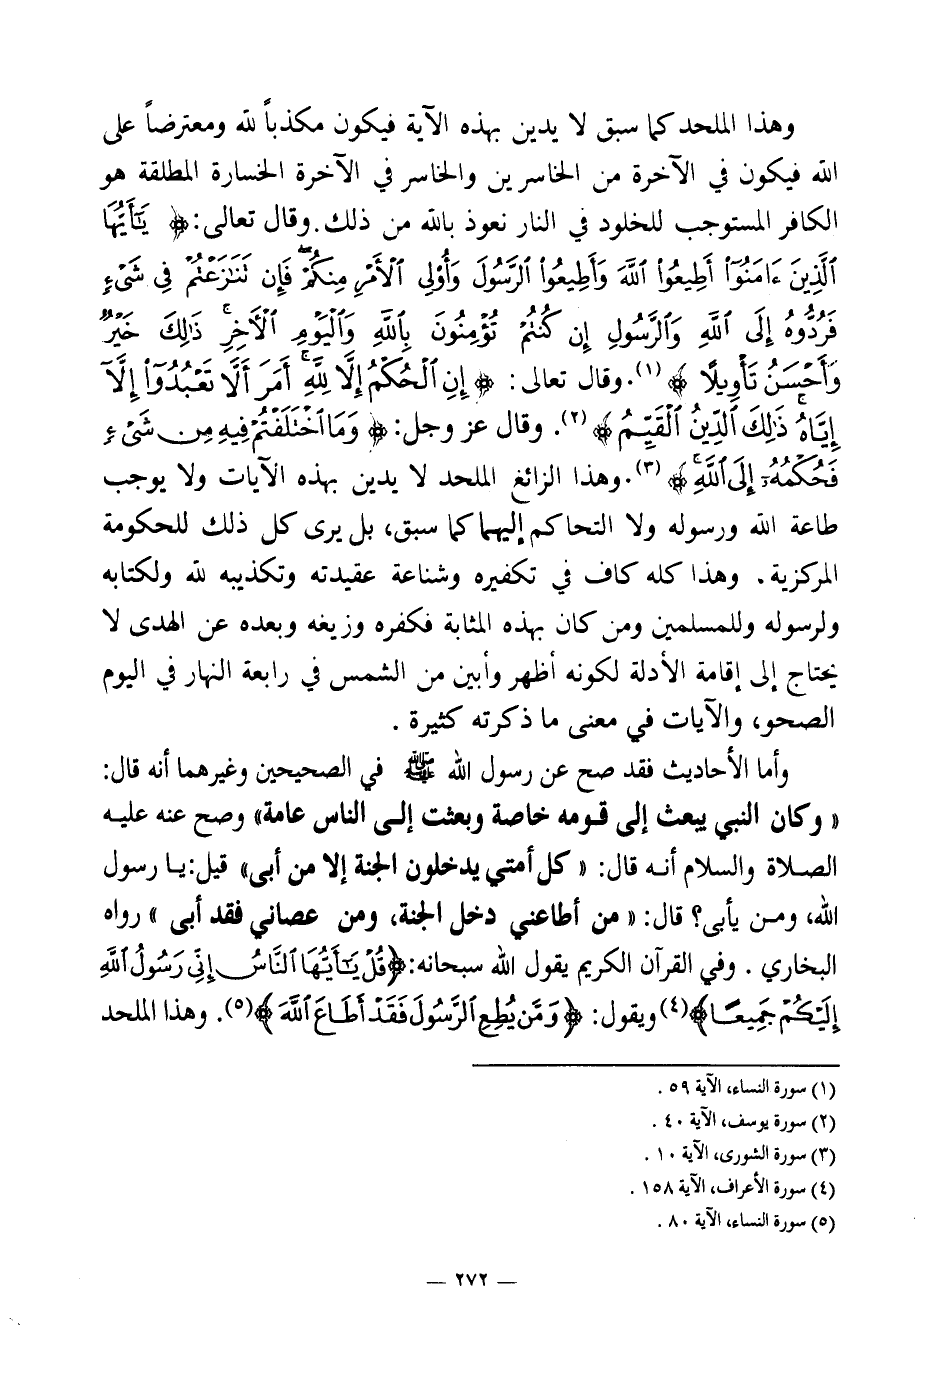 وهذا الملحد كما سبق لا يدين بهذه الآية فيكون مكذباً لله ومعترضاً على
الله فيكون في الآخرة من الخاسرين والخاسر في الآخرة الخسارة المطلقة هو
الكافر المستوجب للخلود في النار نعوذ بالله من ذلك. وقال تعالى: ﴿ يَٰٓأَيُّهَا
ٱلَّذِينَ ءَامَنُوٓا۟ أَطِيعُوا۟ ٱللَّهَ وَأَطِيعُوا۟ ٱلرَّسُولَ وَأُو۟لِى ٱلْأَمْرِ مِنكُمْ ۖ فَإِن تَنَٰزَعْتُمْ فِى شَىْءٍ
فَرُدُّوهُ إِلَى ٱللَّهِ وَٱلرَّسُولِ إِن كُنتُمْ تُؤْمِنُونَ بِٱللَّهِ وَٱلْيَوْمِ ٱلْءَاخِرِ ۚ ذَٰلِكَ خَيْرٌ
وَأَحْسَنُ تَأْوِيلًا ﴾ (١). وقال تعالى: ﴿ إِنِ ٱلْحُكْمُ إِلَّا لِلَّهِ ۚ أَمَرَ أَلَّا تَعْبُدُوٓا۟ إِلَّآ
إِيَّاهُ ۚ ذَٰلِكَ ٱلدِّينُ ٱلْقَيِّمُ ﴾ (٢). وقال عز وجل: ﴿ وَمَا ٱخْتَلَفْتُمْ فِيهِ مِن شَىْءٍ
فَحُكْمُهُۥٓ إِلَى ٱللَّهِ ۚ ﴾ (٣). وهذا الزائغ الملحد لا يدين بهذه الآيات ولا يوجب
طاعة الله ورسوله ولا التحاكم إليهما كما سبق، بل يرى كل ذلك للحكومة
المركزية. وهذا كله كاف في تكفيره وشناعة عقيدته وتكذيبه لله ولكتابه
ولرسوله وللمسلمين ومن كان بهذه المثابة فكفره وزيغه وبعده عن الهدى لا
يحتاج إلى إقامة الأدلة لكونه أظهر وأبين من الشمس في رابعة النهار في اليوم
الصحو، والآيات في معنى ما ذكرته كثيرة .
وأما الأحاديث فقد صح عن رسول الله ﷺ في الصحيحين وغيرهما أنه قال:
« وكان النبي يبعث إلى قومه خاصة وبعثت إلى الناس عامة» وصح عنه عليه
الصلاة والسلام أنه قال: « كل أمتي يدخلون الجنة إلا من أبى» قيل: يا رسول
الله، ومن يأبى؟ قال: « من أطاعني دخل الجنة، ومن عصاني فقد أبى » رواه
البخاري . وفي القرآن الكريم يقول الله سبحانه: ﴿قُلْ يَٰٓأَيُّهَا ٱلنَّاسُ إِنِّى رَسُولُ ٱللَّهِ
إِلَيْكُمْ جَمِيعًا﴾(٤) ويقول: ﴿ وَمَّن يُطِعِ ٱلرَّسُولَ فَقَدْ أَطَاعَ ٱللَّهَ ﴾(٥). وهذا الملحد
(١) سورة النساء، الآية ٥٩ .
(٢) سورة يوسف، الآية ٤٠ .
(٣) سورة الشورى، الآية ١٠ .
(٤) سورة الأعراف، الآية ١٥٨ .
(٥) سورة النساء، الآية ٨٠ .
— ٢٧٢ —